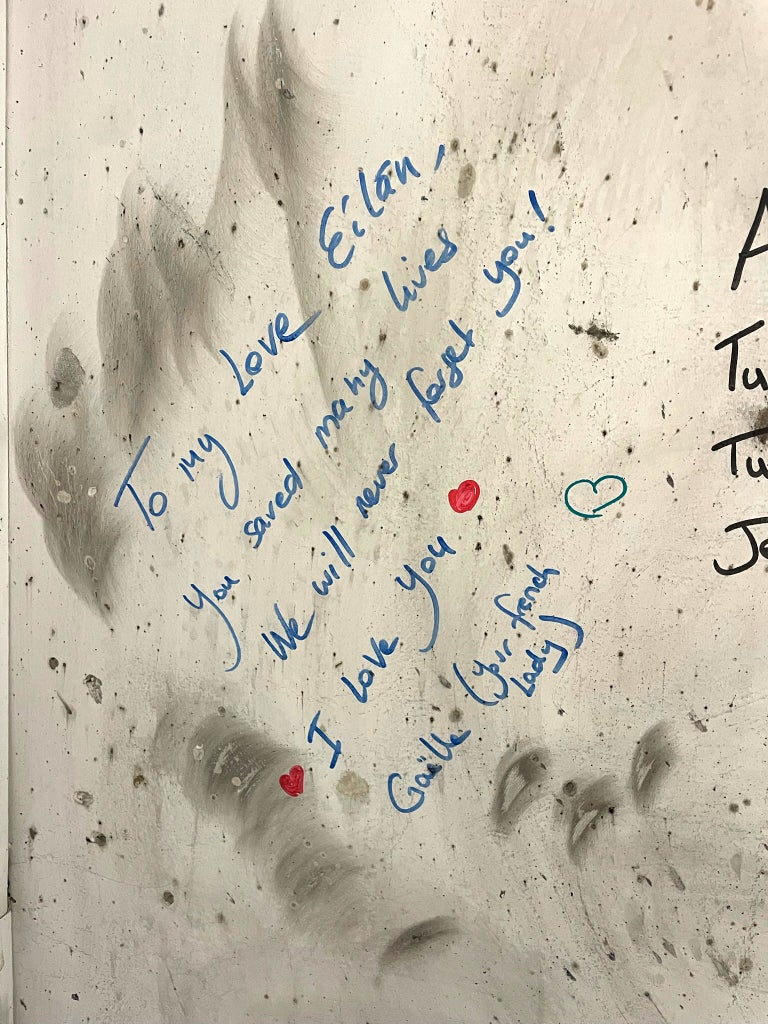 To my Love Eilan,
You saved many lives
We will never forget you!
I Love you
Gaëlle (your french
Lady)
A
Tu
Tu
Jo